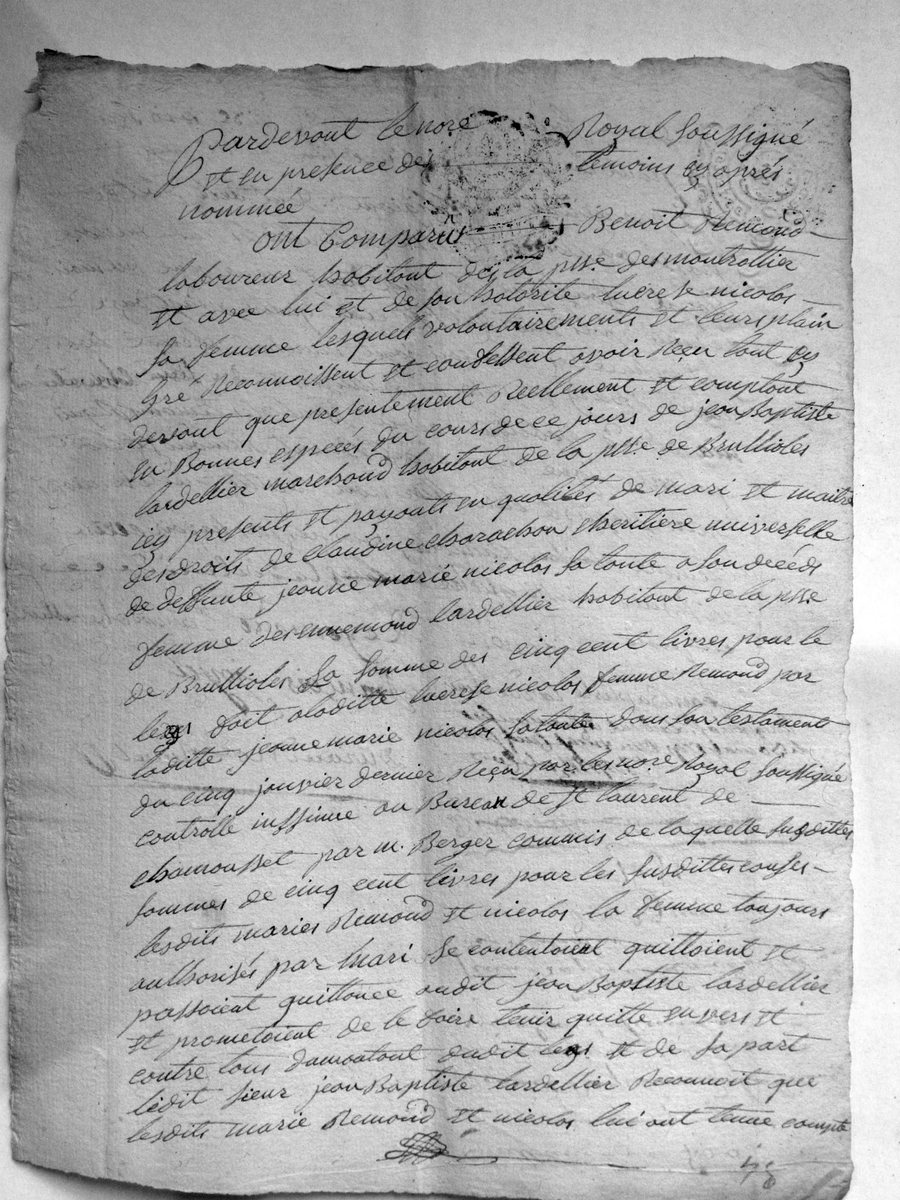 Pardevant le nore Royal Soussigné
et en presence des temoins cy aprés
nommée
ont Comparûs Benoit Remond
laboureur habitant des la psse. des montrottier
et avec lui et de son hotorité lucrese nicolas
sa femme lesquels volontairements et leurs plain
gré Reconnoissent et confessent avoir Reçu tout cy
devant que presentement Reellement et comptant
en Bonnes especes du cours de ce jours de jean Baptiste
lardellier marchand habitant de la psse de Brullioles
icy presents et payants en qualités de mari et maitre
des droits de Claudine Charachon heritiere universelle
de deffunte jeanne marie nicolas sa tante a son décéds
femme des ennemond lardellier habitant de la psse
de Brullioles la somme des cinq cent livres pour le
legs fait a laditte lucrese nicolas femme Remond par
laditte jeanne marie nicolas sa tante dans son testament
du cinq janvier dernier Reçu par le nore Royal Soussigné
controlle inssinue au Bureau de st laurent de
chamousset par m. Berger commis de laquelle susdittes
sommes de cinq cent livres pour les susdittes causes
lesdits maries Remond et nicolas la femme toujours
authorisés par mari se contentoient quittoient et
passoient quittance audit jean Baptiste lardellier
et prometoient de le faire tenir quitte envers et
contre tous damontant dudit legs et de sa part
ledit sieur jean Baptiste lardellier Reconnoit que
lesdits marie Remond et nicolas lui ont tenue compte